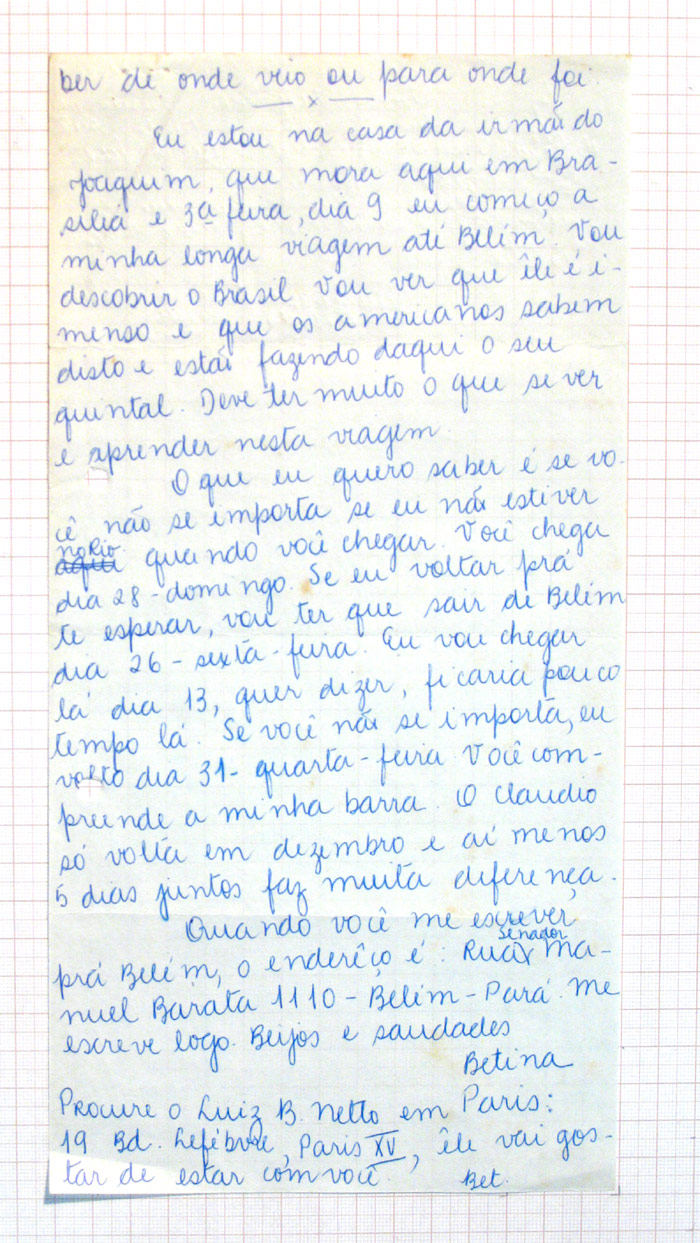 ber de onde veio ou para onde foi.
— x —
Eu estou na casa da irmã do
Joaquim, que mora aqui em Bra-
silia e 3ª feira, dia 9 eu começo a
minha longa viagem até Belém. Vou
descobrir o Brasil Vou ver que êle é i-
menso e que os americanos sabem
disto e estão fazendo daqui o seu
quintal. Deve ter muito o que se ver
e aprender nesta viagem.
O que eu quero saber é se vo-
cê não se importa se eu não estiver
no Rio
aqui quando você chegar. Você chega
dia 28 - domingo. Se eu voltar prá
te esperar, vou ter que sair de Belém
dia 26 - sexta-feira. Eu vou chegar
lá dia 13, quer dizer, ficaria pouco
tempo lá. Se você não se importa, eu
volto dia 31 - quarta-feira Você com-
preende a minha barra. O Claudio
só volta em dezembro e aí menos
5 dias juntos faz muita diferença.
Quando você me escrever
prá Belém, o enderêço é: Rua Senador Ma-
nuel Barata 1110 - Belém - Pará. Me
escreve logo. Beijos e saudades
Betina
Procure o Luiz B. Netto em Paris:
19 Bd. Lefébvre, Paris XV, êle vai gos-
tar de estar com você. Bet.